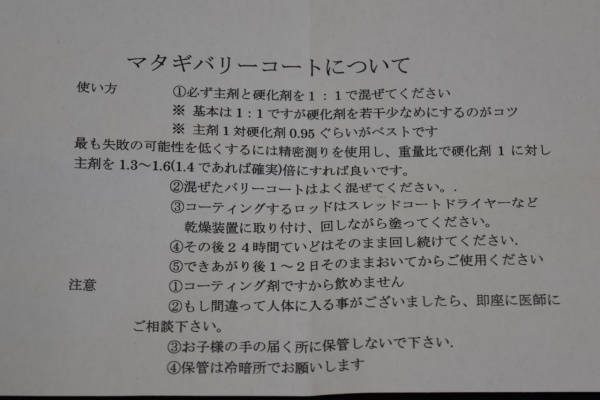 マタギバリーコートについて
使い方 ①必ず主剤と硬化剤を1：1で混ぜてください
※ 基本は1：1ですが硬化剤を若干少なめにするのがコツ
※ 主剤1対硬化剤0.95ぐらいがベストです
最も失敗の可能性を低くするには精密測りを使用し、重量比で硬化剤1に対し
主剤を1.3～1.6(1.4であれば確実)倍にすれば良いです。
②混ぜたバリーコートはよく混ぜてください。.
③コーティングするロッドはスレッドコートドライヤーなど
乾燥装置に取り付け、回しながら塗ってください。
④その後24時間ていどはそのまま回し続けてください.
⑤できあがり後1～2日そのままおいてからご使用ください
注意 ①コーティング剤ですから飲めません
②もし間違って人体に入る事がございましたら、即座に医師に
ご相談下さい。
③お子様の手の届く所に保管しないで下さい.
④保管は冷暗所でお願いします